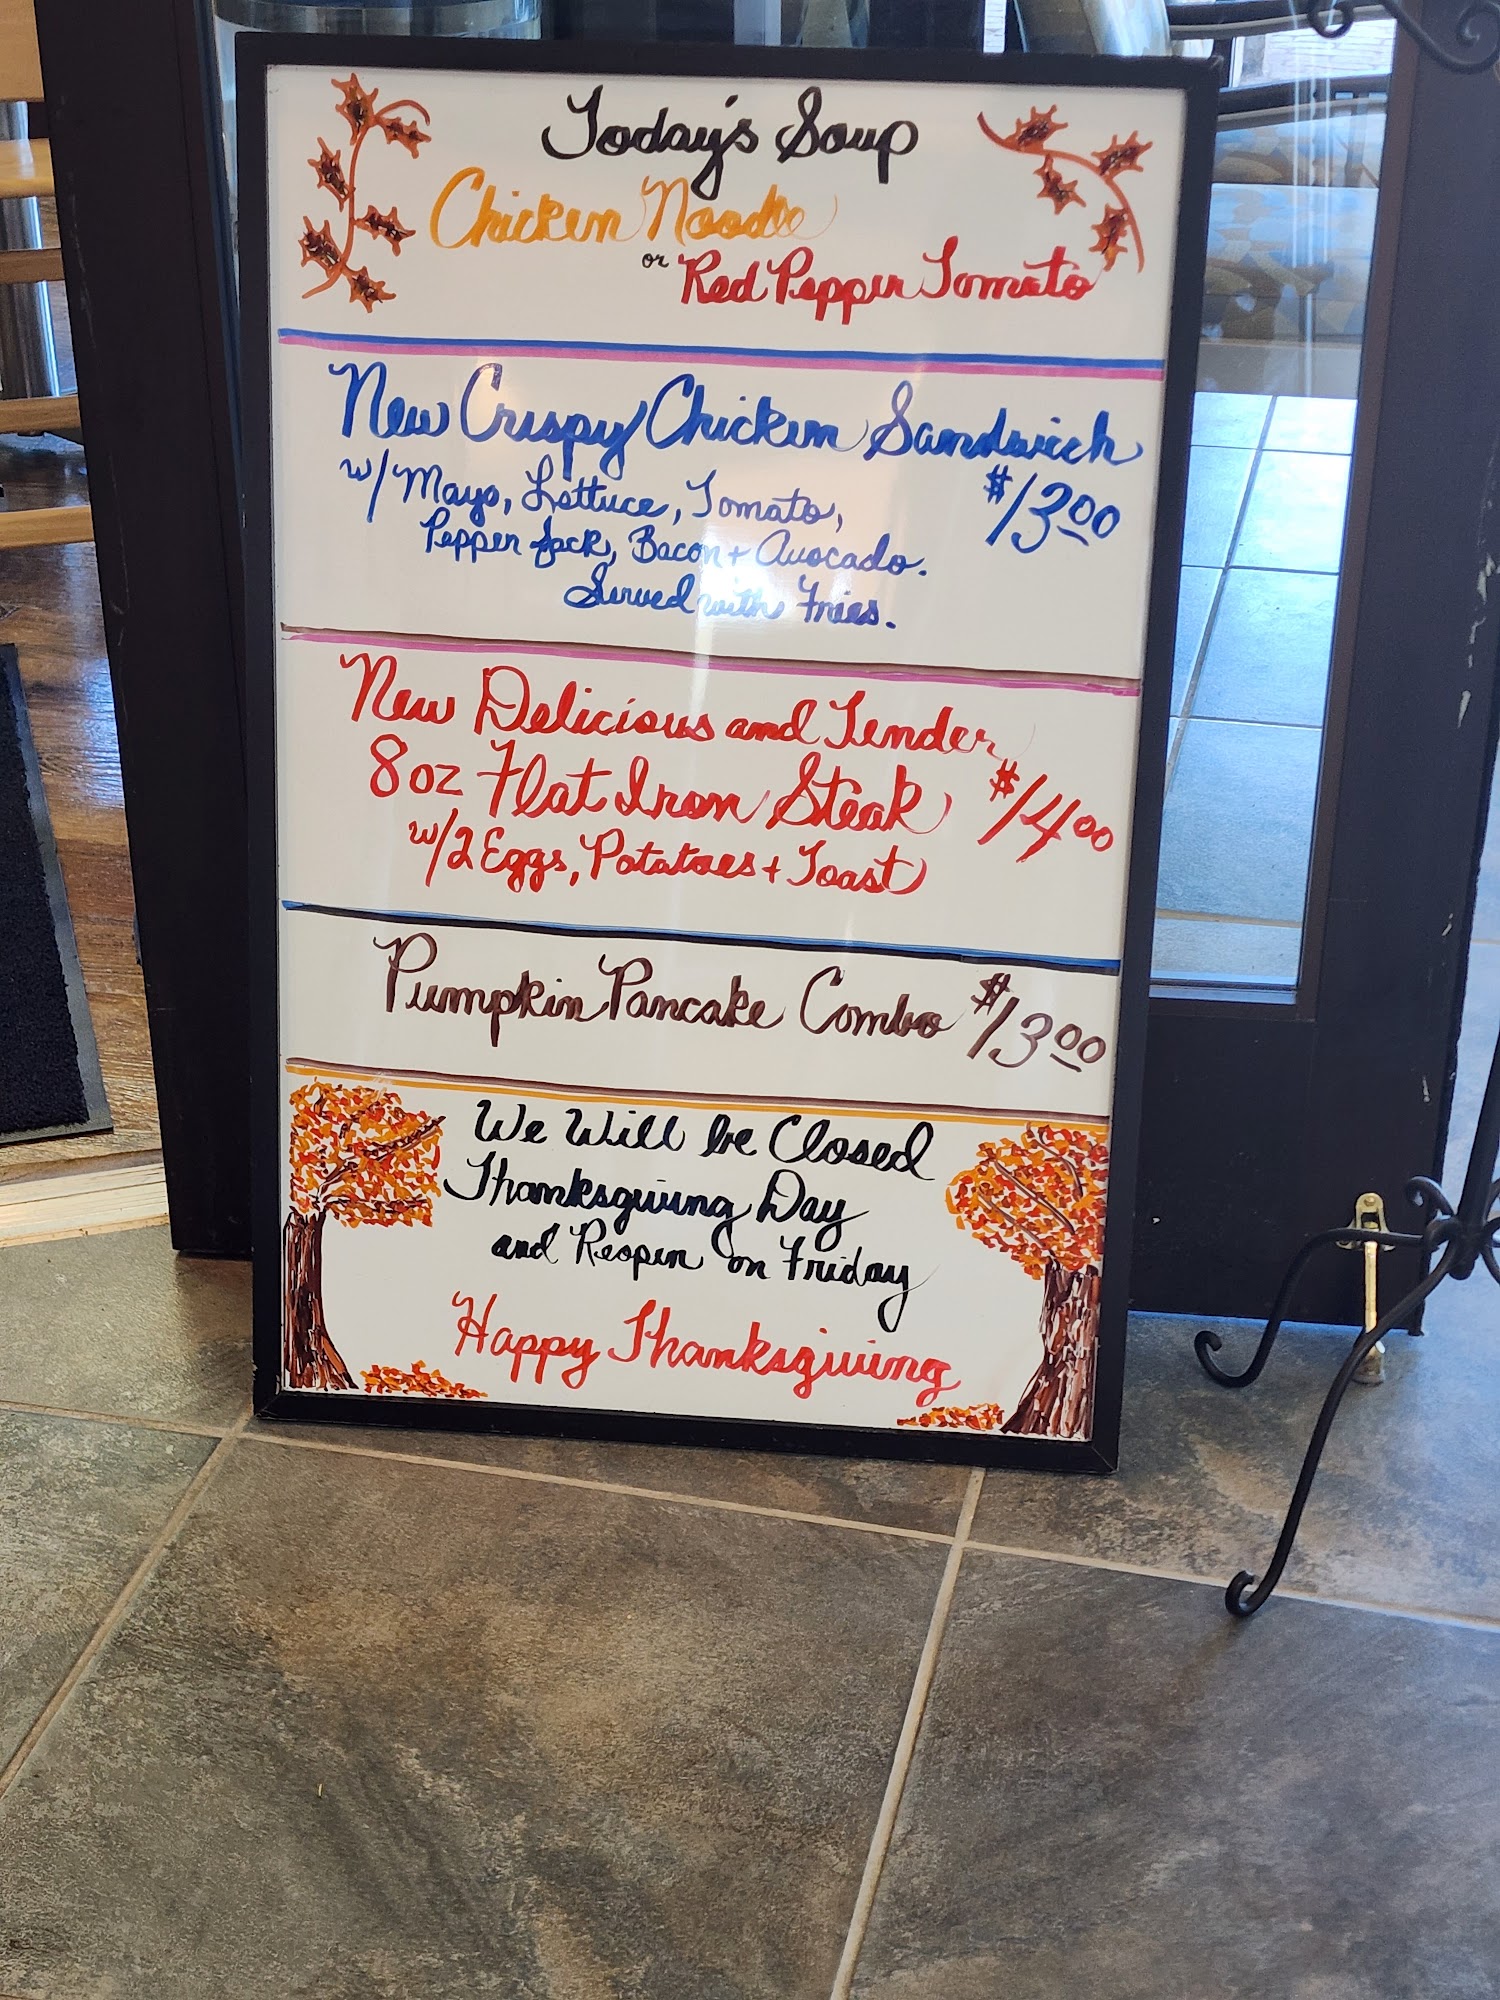 Today's Soup
Chicken Noodle
or Red Pepper Tomato
New Crispy Chicken Sandwich
w/ Mayo, Lettuce, Tomato, $13.00
Pepper Jack, Bacon + Avocado.
Served with Fries.
New Delicious and Tender
8oz Flat Iron Steak $14.00
w/2 Eggs, Potatoes + Toast
Pumpkin Pancake Combo $13.00
We Will be Closed
Thanksgiving Day
and Reopen on Friday
Happy Thanksgiving